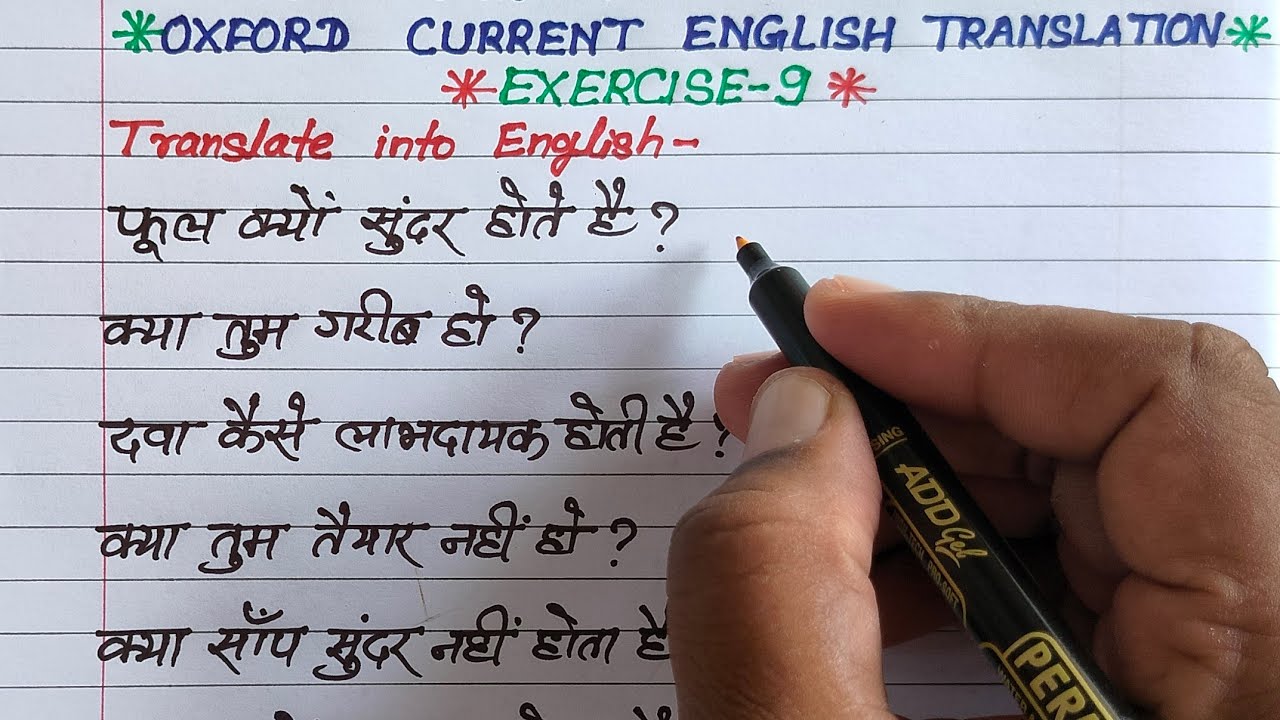 *OXFORD CURRENT ENGLISH TRANSLATION*
*EXERCISE-9*
Translate into English-
फूल क्यों सुंदर होते है?
क्या तुम गरीब हो?
दवा कैसे लाभदायक होती है?
क्या तुम तैयार नहीं हो?
क्या साँप सुंदर नहीं होता है
ADD Gel